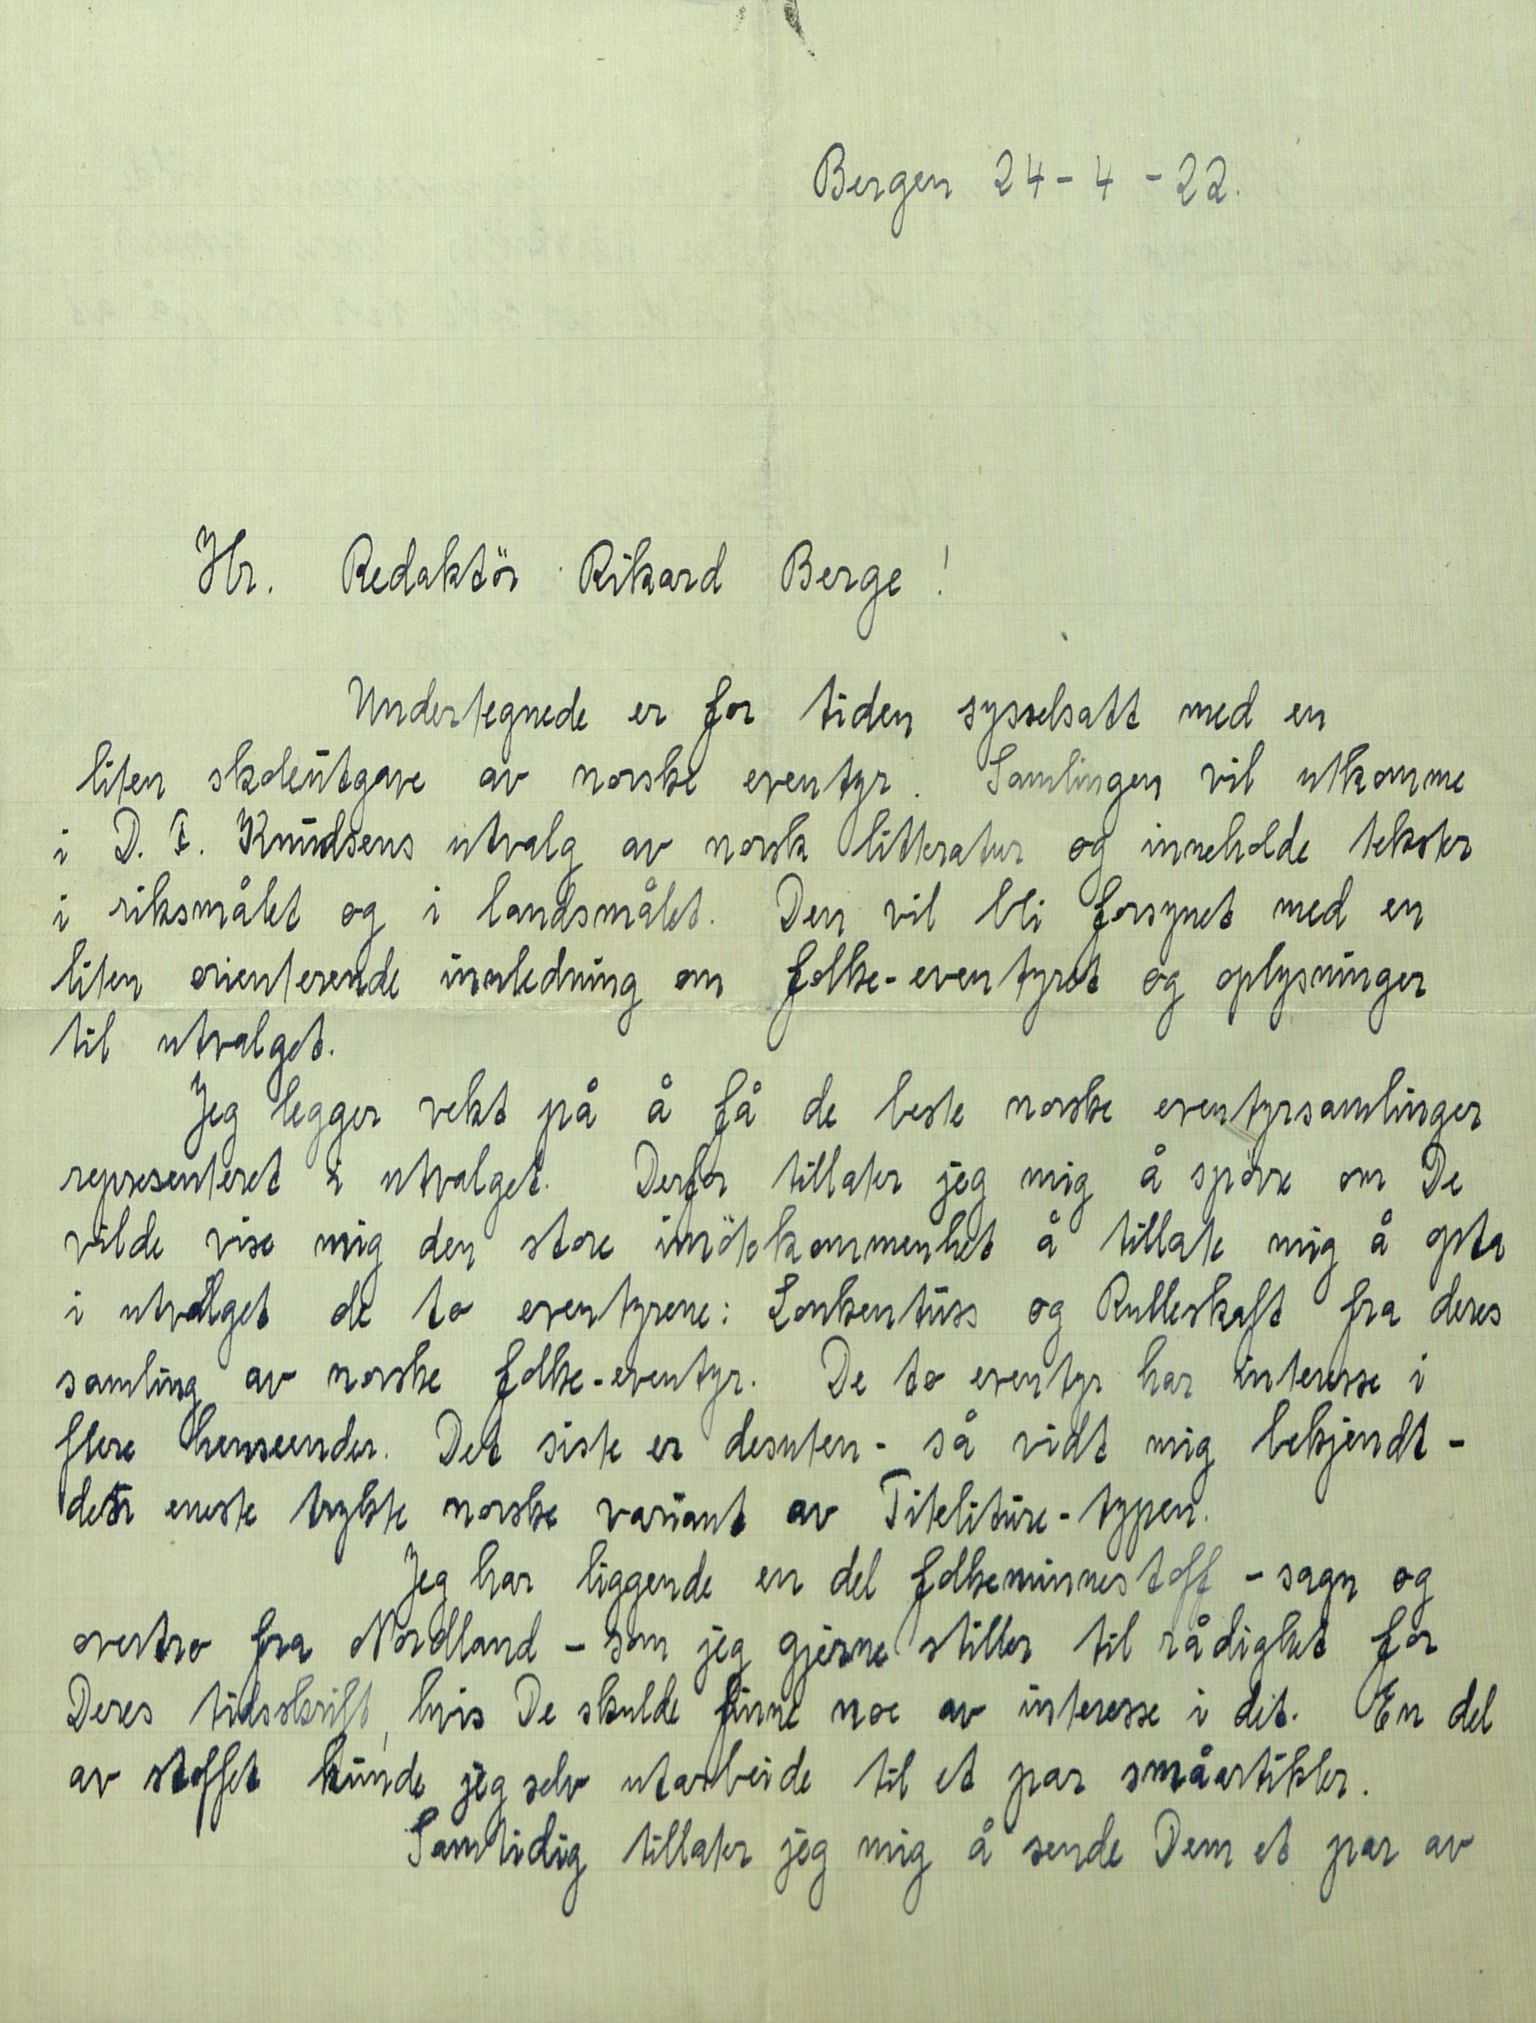 Bergen 24-4-22.
Hr. Redaktör Rikard Berge!
Undertegnede er for tiden sysselsatt med en
liten skoleutgave av norske eventyr. Samlingen vil utkomme
i D. F. Knudsens utvalg av norsk litteratur og inneholde tekster
i riksmålet og i landsmålet. Den vil bli forsynet med en
liten orienterende innledning om folke-eventyret og oplysninger
til utvalget.
Jeg legger vekt på å få de beste norske eventyrsamlinger
representeret i utvalget. Derfor tillater jeg mig å spörre om De
vilde vise mig den store imötekommenhet å tillate mig å opta
i utvalget de to eventyrene: Lonkentuss og Rulleskaft fra deres
samling av norske folke-eventyr. De to eventyr har interesse i
flere henseender. Det siste er desuten - så vidt mig bekjendt -
den eneste trykte norske variant av Titeliture-typen.
Jeg har liggende en del folkeminnestoff - sagn og
overtro fra Nordland - som jeg gjerne stiller til rådighet for
Deres tidsskrift, hvis De skulde finne noe av interesse i det. En del
av stoffet kunde jeg selv utarbeide til et par småartikler.
Samtidig tillater jeg mig å sende Dem et par av